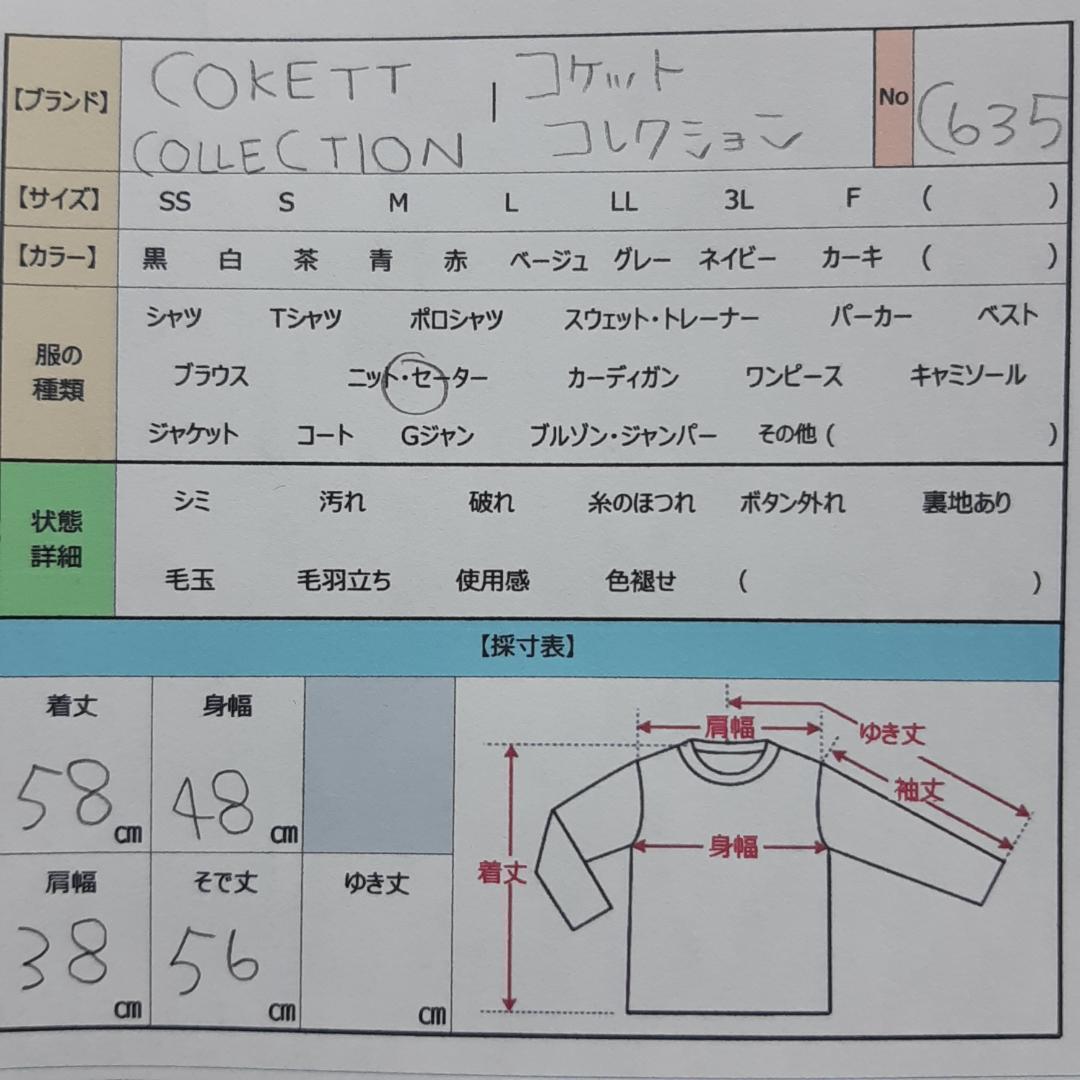 【ブランド】 COKETT | コケット No C635
COLLECTION コレクション
【サイズ】 SS S M L LL 3L F ( )
【カラー】 黒 白 茶 青 赤 ベージュ グレー ネイビー カーキ ( )
服の種類
シャツ Tシャツ ポロシャツ スウェット・トレーナー パーカー ベスト
ブラウス ニット・セーター カーディガン ワンピース キャミソール
ジャケット コート Gジャン ブルゾン・ジャンパー その他 ( )
状態詳細
シミ 汚れ 破れ 糸のほつれ ボタン外れ 裏地あり
毛玉 毛羽立ち 使用感 色褪せ ( )
【採寸表】
着丈 身幅
58 cm 48 cm
肩幅 そで丈 ゆき丈
38 cm 56 cm cm
肩幅 ゆき丈
袖丈
身幅
着丈